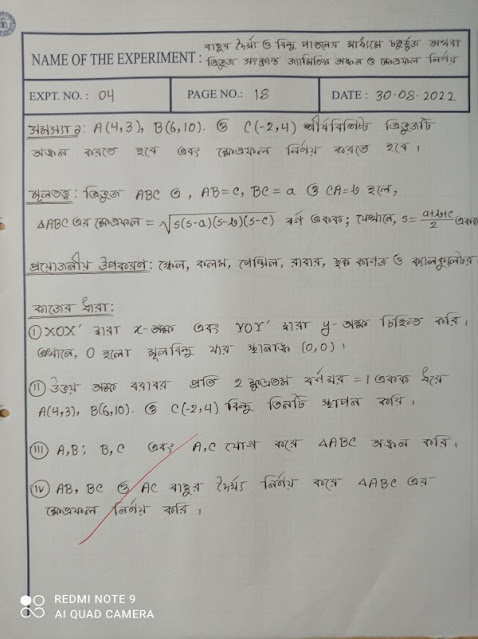 NAME OF THE EXPERIMENT : বাহুর দৈর্ঘ্য ও বিন্দু পাতনের মাধ্যমে চতুর্ভুজ অথবা
ত্রিভুজ সংক্রান্ত জ্যামিতিক অঙ্কন ও ক্ষেত্রফল নির্ণয়
EXPT. NO. : 04 PAGE NO. : 18 DATE : 30-08-2022
সমস্যা: A(4,3), B(6,10). ও C(-2,4) শীর্ষবিশিষ্ট ত্রিভুজটি
অঙ্কন করতে হবে এবং ক্ষেত্রফল নির্ণয় করতে হবে ।
মূলতত্ত্ব: ত্রিভুজ ABC এ, AB=c, BC=a ও CA=b হলে,
ΔABC এর ক্ষেত্রফল = √s(s-a)(s-b)(s-c) বর্গ একক; যেখানে, s = a+b+c/2 একক
প্রয়োজনীয় উপকরণ: স্কেল, কলম, পেন্সিল, রাবার, ছক কাগজ ও ক্যালকুলেটর
কাজের ধারা:
(i) XOX' দ্বারা x-অক্ষ এবং YOY' দ্বারা y-অক্ষ চিহ্নিত করি ।
এখানে, O হলো মূলবিন্দু যার স্থানাঙ্ক (0,0) ।
(ii) উভয় অক্ষ বরাবর প্রতি 2 ক্ষুদ্রতম বর্গঘর = 1 একক ধরে
A(4,3), B(6,10). ও C(-2,4) বিন্দু তিনটি স্থাপন করি ।
(iii) A,B; B,C এবং A,C যোগ করে ΔABC অঙ্কন করি ।
(iv) AB, BC ও AC বাহুর দৈর্ঘ্য নির্ণয় করে ΔABC এর
ক্ষেত্রফল নির্ণয় করি ।
REDMI NOTE 9
AI QUAD CAMERA